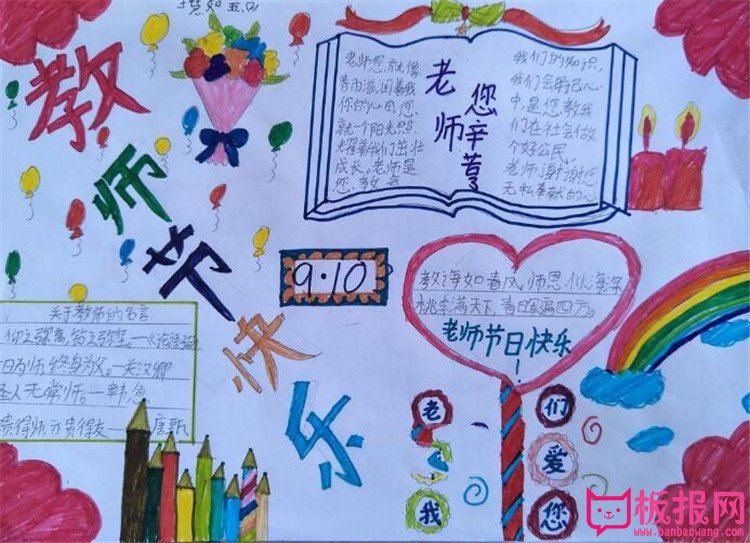 教师节快乐
老师您就像
春雨滋润着我
你的心田，您
就一个阳光照
耀着我们茁壮
成长，老师是
您教会
老师
您辛苦了
我们的知识，
我们会牢记心
中，是您教我
们在社会做
个好公民，
老师谢谢您
无私奉献的心
9·10
教诲如春风，师恩似海深
桃李满天下，春晖遍四方。
老师节日快乐！
关于教师的名言
仰之弥高，钻之弥坚。—《论语
日为师，终身为父。—关汉卿
圣人无常师。—韩愈
贵得师，亦贵得友—唐甄
老
们
爱
我
您
板报网
www.banbaowang.com